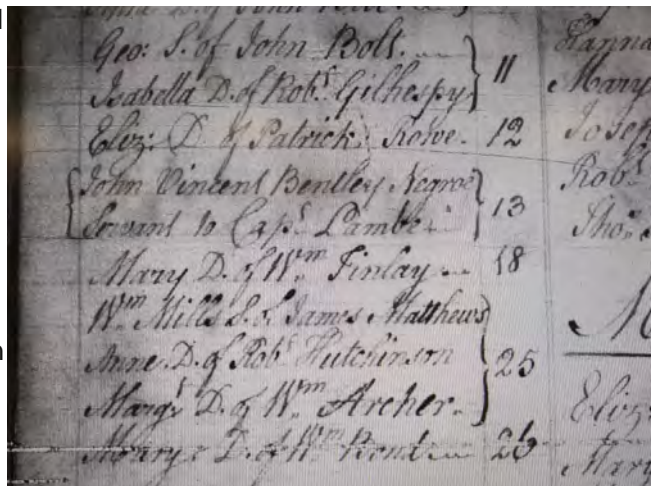 Geo: S. of John Bolt. 11
Isabella D. of Robt. Gilhespy
Eliz: D of Patrick Rowe. 12
John Vincent Bentley Negroe 13
Servant to Capt. Lambe
Mary D. of Wm. Finlay 18
Wm. Mills S. of James Matthews
Anne D. of Robt Hutchinson 25
Margt. D. of Wm Archer.
Mary D. of Wm 26
Hanna
Mary
Joseph
Robt
Thos.
M
Eliz:
Mary